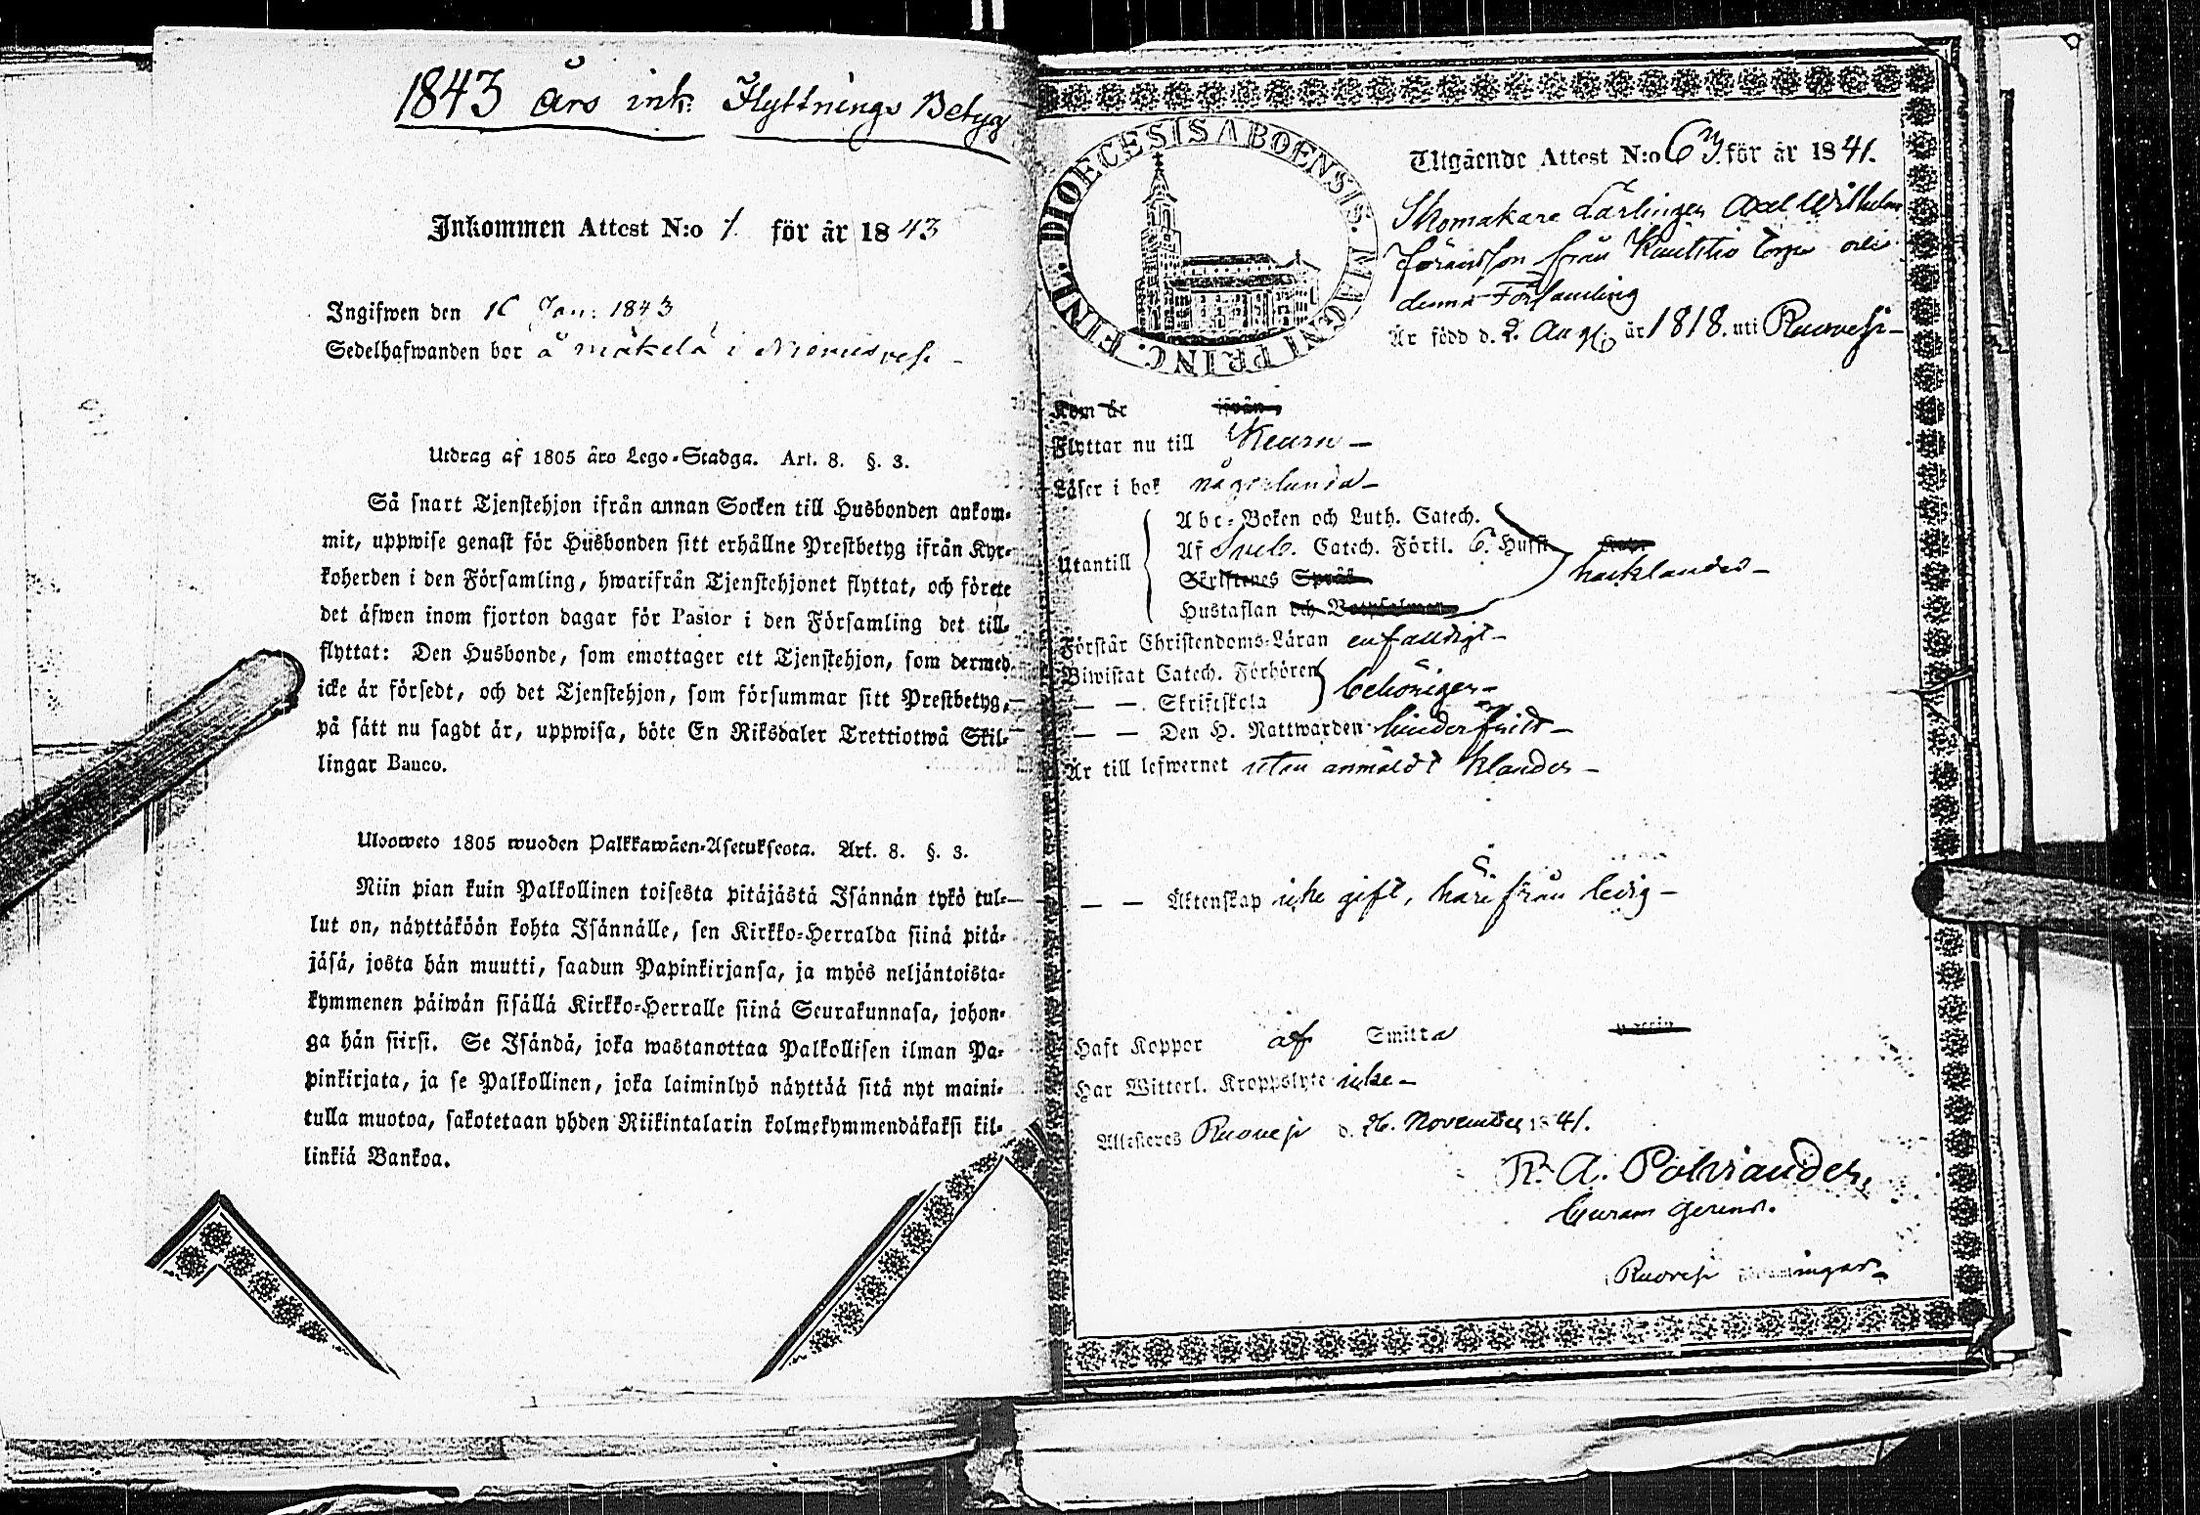 1843 års ink. Flyttnings Betyg
Inkommen Attest N:o 1. för år 1843
Ingifwen den 16 Jan: 1843
Sedelhafwanden bor å mäkelä i
Utdrag af 1805 års Lego-Stadga. Art. 8. §. 3.
Så snart Tjenstehjon ifrån annan Socken till Husbonden ankom-
mit, uppwise genast för Husbonden sitt erhållne Prestbetyg ifrån Kyr-
koherden i den Församling, hwarifrån Tjenstehjonet flyttat, och förete
det äfwen inom fjorton dagar för Pastor i den Församling det till-
flyttat: Den Husbonde, som emottager ett Tjenstehjon, som dermed
icke är försedt, och det Tjenstehjon, som försummar sitt Prestbetyg,
på sätt nu sagdt är, uppwisa, böte En Riksdaler Trettiotwå Skil-
lingar Banco.
Ulosweto 1805 wuoden Palkkawäen-Asetuksesta. Art. 8. §. 3.
Niin pian kuin Palkollinen toisesta pitäjästä Isännän tykö tul-
lut on, näyttäköön kohta Isännälle, sen Kirkko-Herralda siinä pitä-
jäsä, josta hän muutti, saadun Papinkirjansa, ja myös neljäntoista-
kymmenen päiwän sisällä Kirkko-Herralle siinä Seurakunnasa, johon-
ga hän siirsi. Se Isändä, joka wastanottaa Palkollisen ilman Pa-
pinkirjata, ja se Palkollinen, joka laiminlyö näyttää sitä nyt maini-
tulla muotoa, sakotetaan yhden Riikintalarin kolmekymmendäkaksi kil-
linkiä Bankoa.
DIOECESIS ABOENSIS. MAGNI PRINC. FINL.
Utgående Attest N:o 63. för år 1841.
Skomakare Lärlingen Axel Wilhelm
från Torp
denna Församling
Är född d. 2. Aug år 1818. uti Ruovesi
Kom år ifrån
Flyttar nu till Keuru
Läser i bok någorlunda
Utantill
Abc-Boken och Luth. Catech.
Af Sveb. Catech. Förkl. 6. Hufst
Skriftenes Språk
Hustaflan och Botpsalmer
Förstår Christendoms-Läran enfaldigt
Biwistat Catech. Förhören
— — Skriftskola behörigen
— — Den H. Nattwarden
Är till lefwernet utan anmäldt klander
— — Äktenskap icke gift, härifrån ledig
Haft Koppor af Smitta
Har Witterl. Kroppslyte icke
Attesteres Ruovesi d. 26. November 1841.
A. Polviander,
Curam gerens.
Ruovesi Församlingar